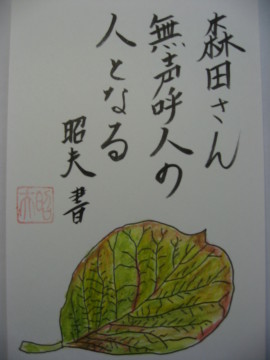 森田さん
無声呼人の
人となる
昭夫書